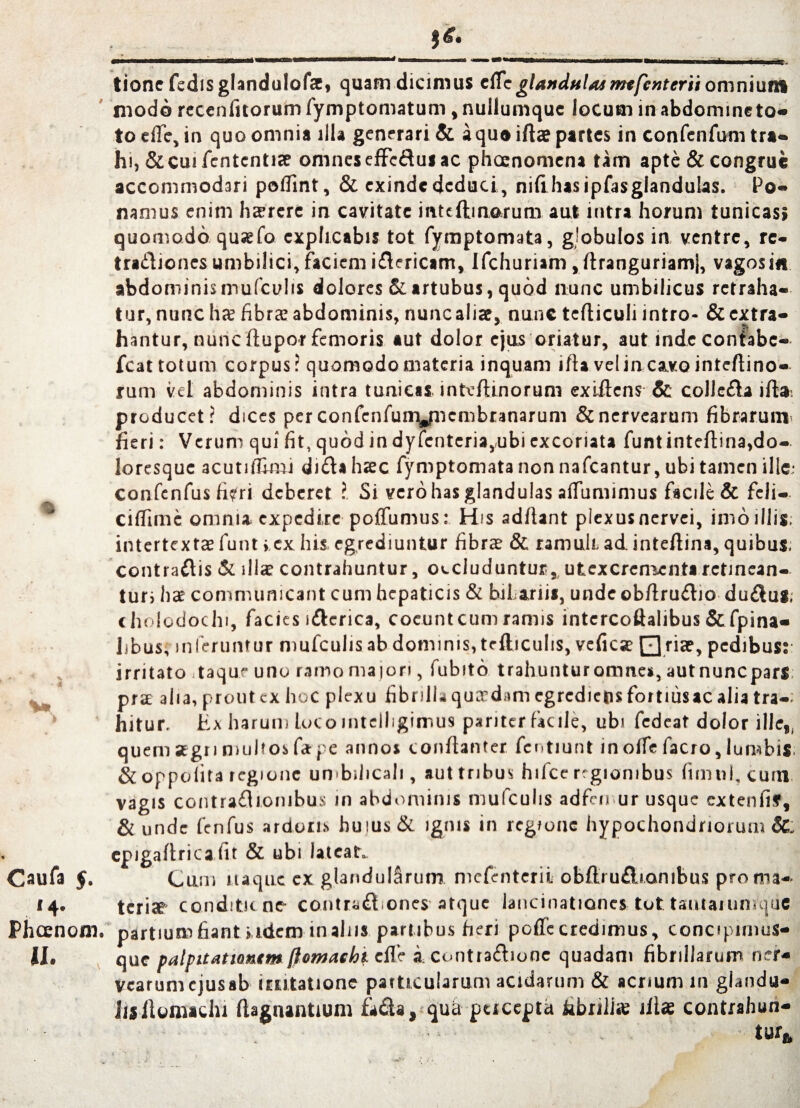 36.
tione sedis glandulosæ, quam dicimus esse glandulas mesenterii omnium
modò recensitorum symptomatum, nullumque locum in abdomine to-
to esse, in quo omnia illa generari & à quo istæ partes in consensum tra-
hi, & cui sententiæ omnes effectus ac phœnomena tàm aptè & congruè
accommodari possint, & exinde deduci, nisi has ipsas glandulas. Po-
namus enim hærere in cavitate intestinorum aut intra horum tunicas;
quomodò quæso explicabis tot symptomata, globulos in ventre, re-
tractiones umbilici, faciem ictericam, Ischuriam, stranguriam, vagos in
abdominis musculis dolores & artubus, quòd nunc umbilicus retraha-
tur, nunc hæ fibræ abdominis, nunc aliæ, nunc testiculi intro- & extra-
hantur, nunc stupor femoris aut dolor ejus oriatur, aut inde contabe-
scat totum corpus? quomodo materia inquam ista vel in cavo intestino-
rum vel abdominis intra tunicas intestinorum existens & collecta ista
producet? dices per consensum membranarum & nervearum fibrarum
fieri: Verum qui fit, quòd in dysenteria, ubi excoriata sunt intestina, do-
loresque acutissimi dicta hæc symptomata non nascantur, ubi tamen ille
consensus fieri deberet? Si verò has glandulas assumimus facilè & feli-
cissimè omnia expedire possumus: His adstant plexus nervei, imò illis
intertextæ sunt; ex his egrediuntur fibræ & ramuli ad intestina, quibus
contractis & illæ contrahuntur, occluduntur, ut excrementa retinean-
tur; hæ communicant cum hepaticis & biliariis, unde obstructio ductus
cholodochi, facies icterica, coeunt cum ramis intercostalibus & spina-
libus, inseruntur musculis ab dominis, testiculis, vesicæ □riæ, pedibus:
irritato itaque uno ramo majori, subitò trahuntur omnes, aut nunc pars
præ alia, prout ex hoc plexu fibrilla quædam egrediens fortiùs ac alia tra-
hitur. Ex harum loco intelligimus pariter facilè, ubi sedeat dolor ille,
quem ægri multos sæpe annos constanter sentiunt in osse sacro, lumbis
& opposita regione umbilicali, aut tribus hisce regionibus simul, cum
vagis contractionibus in abdominis musculis adsen ur usque extensis,
& unde sensus ardoris hujus & ignis in regione hypochondriorum &
epigastrica sit & ubi lateat.
Causa §. 14. Phœnom. II.
Cum itaque ex glandularum mesenterii obstructionibus pro ma-
teriæ conditione contractiones atque lancinationes tot tantarumque
partium fiant iidem in aliis partibus fieri posse credimus, concipimus-
que palpitationem stomachi esse à contractione quadam fibrillarum ner-
vearum ejus ab irritatione particularum acidarum & acrium in glandu-
lis stomachi stagnantium facta, quâ perceptâ fibrillæ illæ contrahun-
tur,